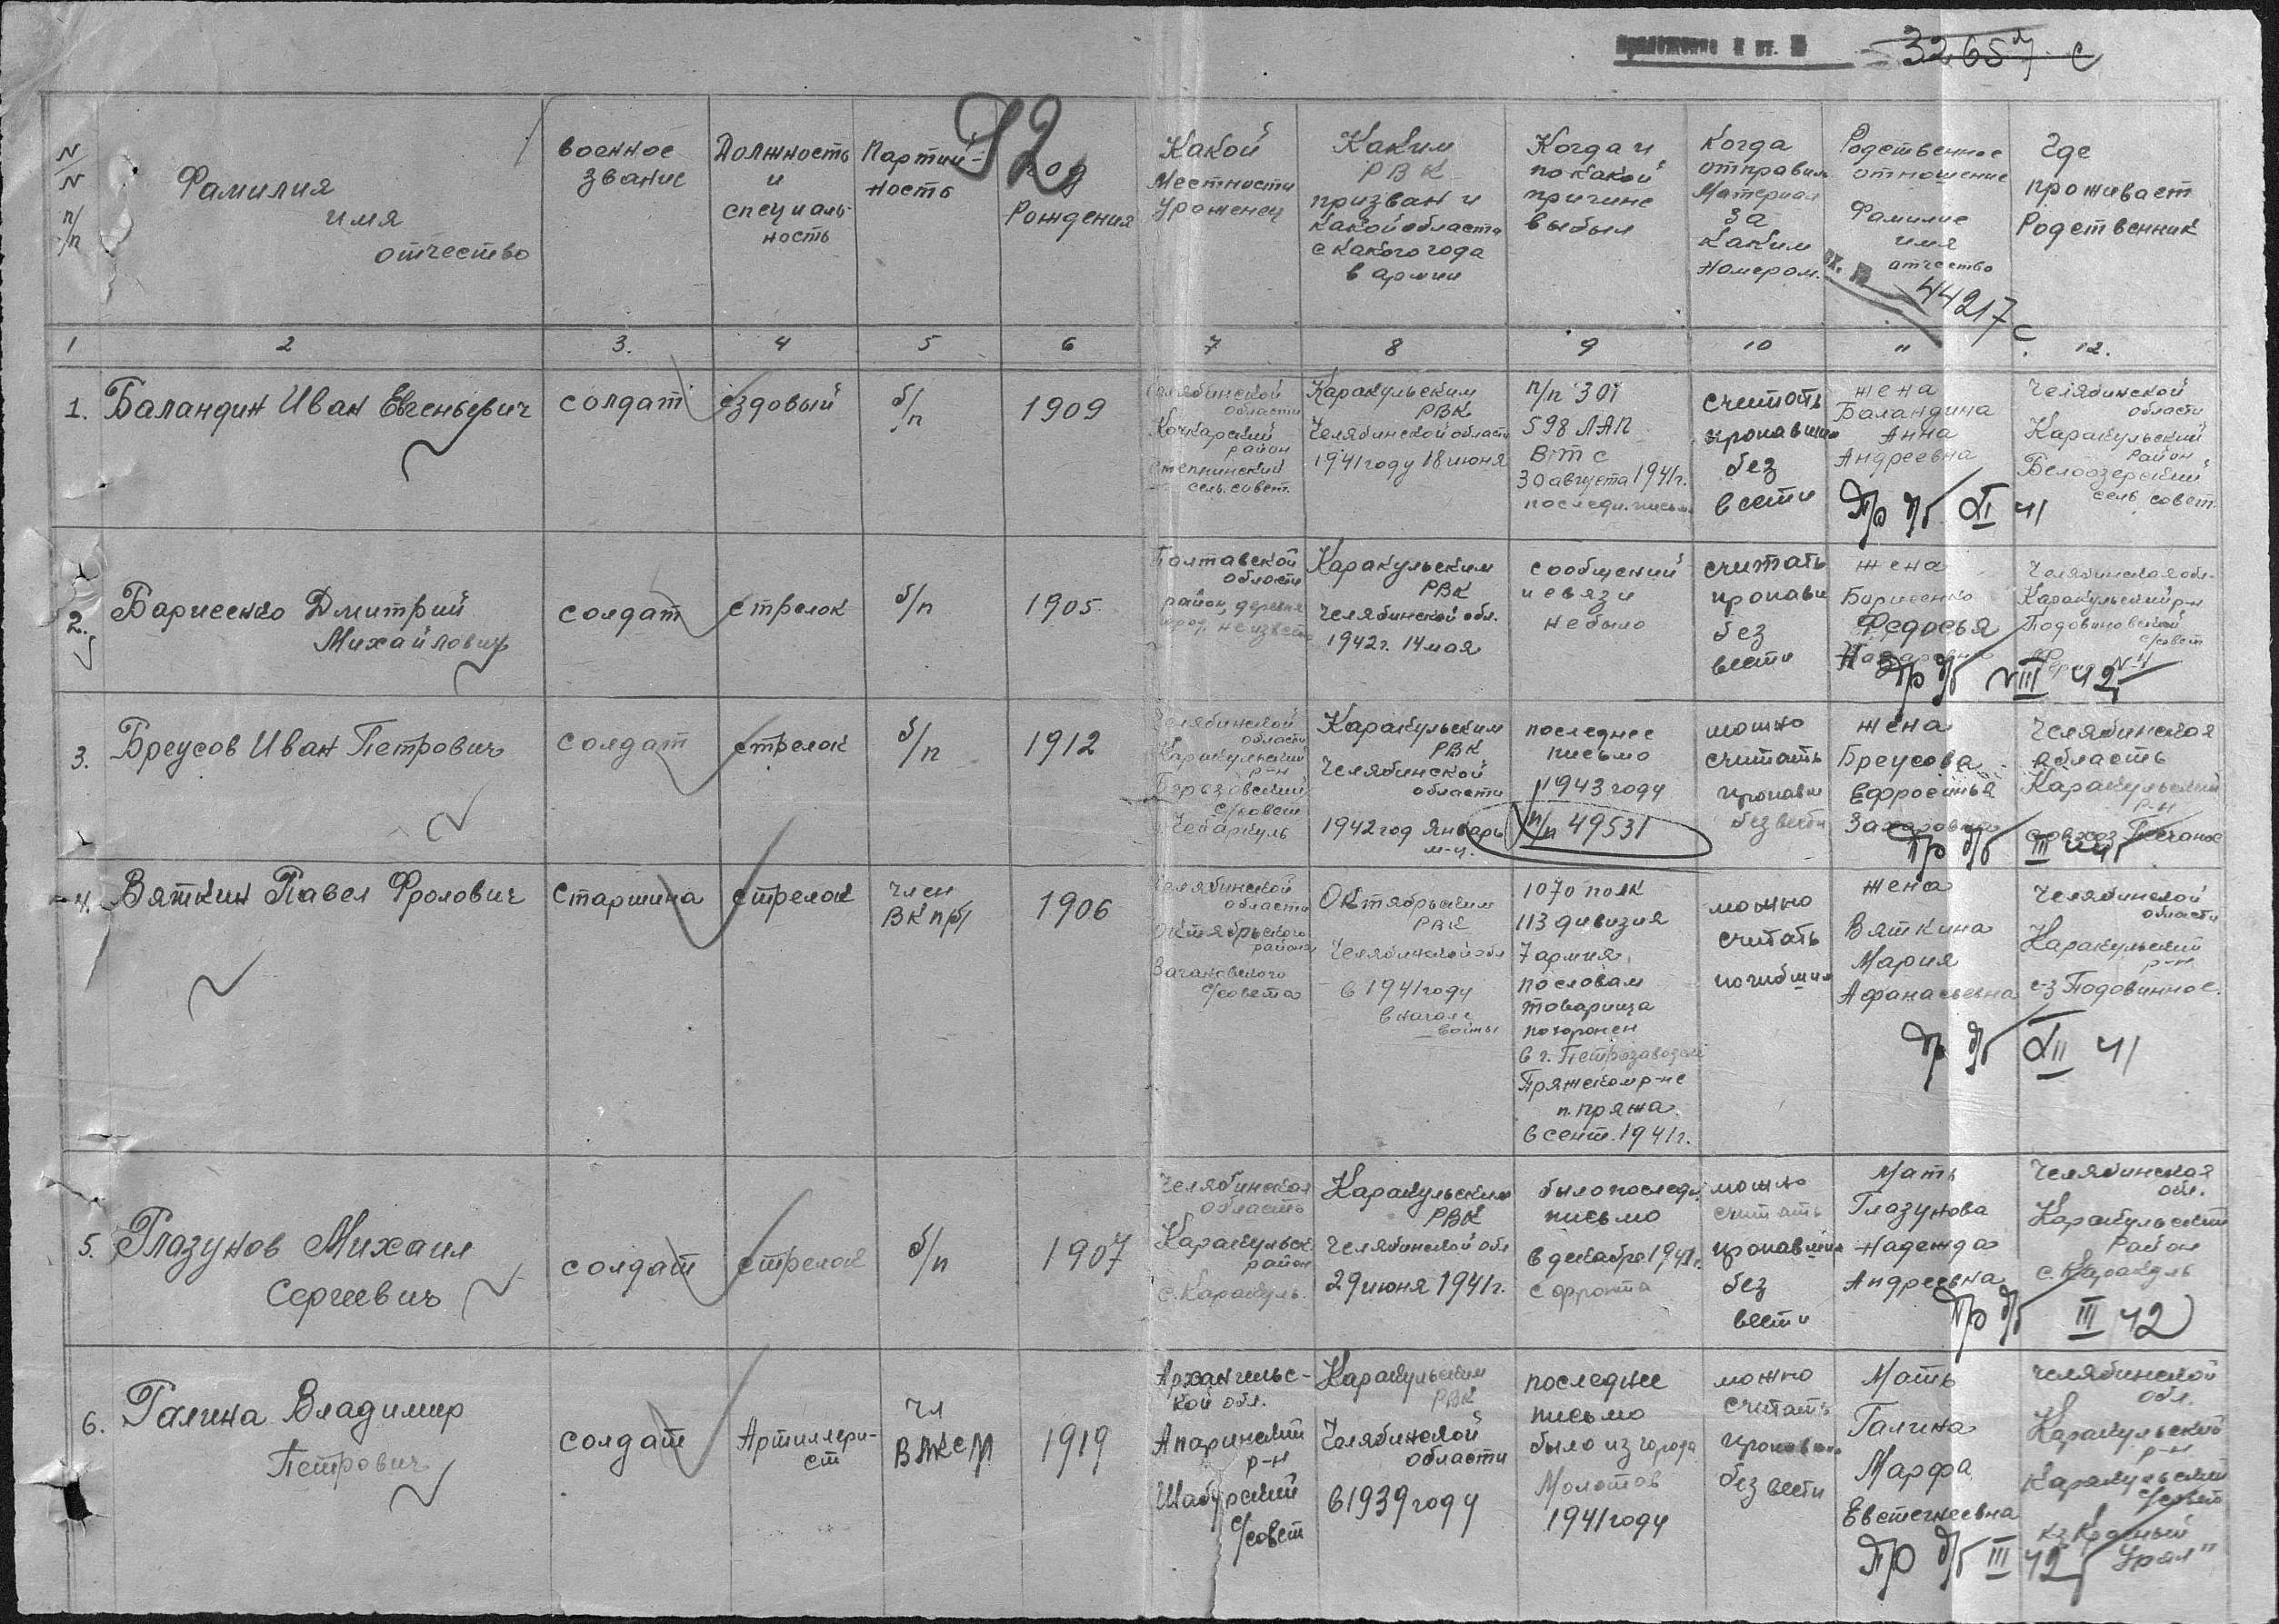 32657 с
92
N/N п/п
Фамилия
имя
отчество
военное
звание
Должность
и
специаль-
ность
Партий-
ность
год
Рождения
Какой
местности
уроженец
Каким
РВК
призван и
какой области
с какого года
в армии
Когда и
по какой
причине
выбыл
Когда
отправил
материал
за
каким
номером.
Родственное
отношение
Фамилие
имя
отчество
Где
проживает
Родственник
44217 с
1 2 3. 4 5 6 7 8 9 10 11 12.
1. Баландин Иван Евгеньевич
солдат
ездовый
б/п
1909
Челябинской
области
Кочкарский
район
Степнинский
сель.совет.
Каракульским
РВК
Челябинской области
1941 году 18 июня
п/п 301
598 ЛАП
В т с
30 августа 1941г.
последн. письм.
считать
пропавшим
без
вести
жена
Баландина
Анна
Андреевна
Челябинской
области
Каракульский
район
Белоозерский
сель совет.
Пр б/ XI 41
2. Борисенко Дмитрий
Михайлович
солдат
стрелок
б/п
1905.
Полтавской
области
район, деревня
город, неизвестн
Каракульским
РВК
Челябинской обл.
1942г. 14 мая
сообщений
и связи
не было
считать
пропавш
без
вести
жена
Борисенко
Федосья
Назаровна
Челябинская обл.
Каракульский р-н
Подовиновский
с/совет
Ферма N-4
Пр б/ VIII 42
3. Бреусов Иван Петрович
солдат
стрелок
б/п
1912
Челябинской
области
Каракульский
р-н
Берёзовский
с/совет
Чебаркуль
Каракульским
РВК
Челябинской
области
1942 год Январь
м-ц.
последнее
письмо
1943 году
п/п 49531
можно
считать
пропавш
без вести
жена
Бреусова
Ефросинья
Захаровна
Челябинская
область
Каракульский
р-н
совхоз Песчаное
Пр б/ III 44
4. Вяткин Павел Фролович
Старшина
стрелок
член
ВКП/б/
1906
Челябинской
области
Октябрьского
района
Октябрьским
РВК
Челябинской обл
в 1941 году
в начале
войны
1070 полк
113 дивизия
7 армия.
по словам
товарища
похоронен
в г. Петрозаводск
Пряжском р-не
п. Пряжа.
в сент. 1941г.
можно
считать
погибшим
жена
Вяткина
Мария
Афанасьевна
Челябинской
области
Каракульский
р-н
с-з Подовинное.
Пр б/ XII 41
5. Глазунов Михаил
Сергеевич
солдат
стрелок
б/п
1907
Челябинская
область
Каракульск.
район
с. Каракуль.
Каракульским
РВК
Челябинской обл
29 июня 1941г.
было последн.
письмо
в декабре 1941г.
с фронта
можно
считать
пропавшим
без
вести
Мать
Глазунова
Надежда
Андреевна
Челябинская
обл.
Каракульский
район
с. Каракуль
Пр б/ III 42
6. Галина Владимир
Петрович
солдат
Артиллери-
ст
чл
ВЛКСМ
1919
Архангельс-
кой обл.
Апаринский
р-н
Шабурский
с/совет
Каракульским
РВК
Челябинской
области
в 1939 году
последнее
письмо
было из города
Молотов
1941 году
можно
считать
пропавшим
без вести
Мать
Галина
Марфа
Евстегнеевна
Челябинской
обл.
Каракульский
р-н
Каракульский
с/совет
кз. Красный
Урал"
Пр б/ III 42